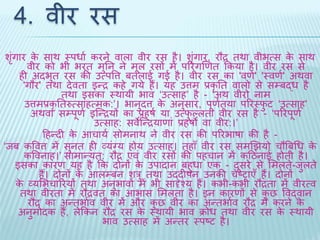 4. वीर रस
शृंगार के साथ स्पर्धा करने वाला वीर रस है। शृंगार, रौद्र तथा वीभत्स के साथ
वीर को भी भरत मुनि ने मूल रसों में परिगणित किया है। वीर रस से
ही अदभुत रस की उत्पत्ति बतलाई गई है। वीर रस का 'वर्ण' 'स्वर्ण' अथवा
'गौर' तथा देवता इन्द्र कहे गये हैं। यह उत्तम प्रकृति वालो से सम्बद्ध है
तथा इसका स्थायी भाव 'उत्साह' है - 'अथ वीरो नाम
उत्तमप्रकृतिरुत्साहत्मकः'। भानुदत्त के अनुसार, पूर्णतया परिस्फुट 'उत्साह'
अथवा सम्पूर्ण इन्द्रियों का प्रहर्ष या उत्फुल्लता वीर रस है - 'परिपूर्ण
उत्साहः सर्वेन्द्रियाणां प्रहर्षो वा वीरः।'
हिन्दी के आचार्य सोमनाथ ने वीर रस की परिभाषा की है -
'जब कवित्त में सुनत ही व्यंग्य होय उत्साह। तहाँ वीर रस समझियो चौबिधि के
कविनाह।' सामान्यत: रौद्र एवं वीर रसों की पहचान में कठिनाई होती है।
इसका कारण यह है कि दोनों के उपादान बहुधा एक - दूसरे से मिलते-जुलते
हैं। दोनों के आलम्बन शत्रु तथा उद्दीपन उनकी चेष्टाएँ हैं। दोनों
के व्यभिचारियों तथा अनुभावों में भी सादृश्य हैं। कभी-कभी रौद्रता में वीरत्व
तथा वीरता में रौद्रवत का आभास मिलता है। इन कारणों से कुछ विद्वान
रौद्र का अन्तर्भाव वीर में और कुछ वीर का अन्तर्भाव रौद्र में करने के
अनुमोदक हैं, लेकिन रौद्र रस के स्थायी भाव क्रोध तथा वीर रस के स्थायी
भाव उत्साह में अन्तर स्पष्ट है।